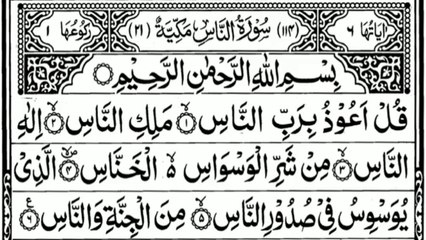 اٰيَاتُهَا ٦ (١١٤) سُوْرَةُ النَّاسِ مَكِّيَّةٌ (٢١) رُكُوْعُهَا ١
بِسْمِ اللّٰهِ الرَّحْمٰنِ الرَّحِيْمِ
قُلْ اَعُوْذُ بِرَبِّ النَّاسِ ۙ﴿١﴾ مَلِكِ النَّاسِ ۙ﴿٢﴾ اِلٰهِ
النَّاسِ ۙ﴿٣﴾ مِنْ شَرِّ الْوَسْوَاسِ ۙ۬ الْخَنَّاسِ ۪ۙ﴿٤﴾ الَّذِىْ
يُوَسْوِسُ فِىْ صُدُوْرِ النَّاسِ ۙ﴿٥﴾ مِنَ الْجِنَّةِ وَالنَّاسِ ﴿٦﴾ ع